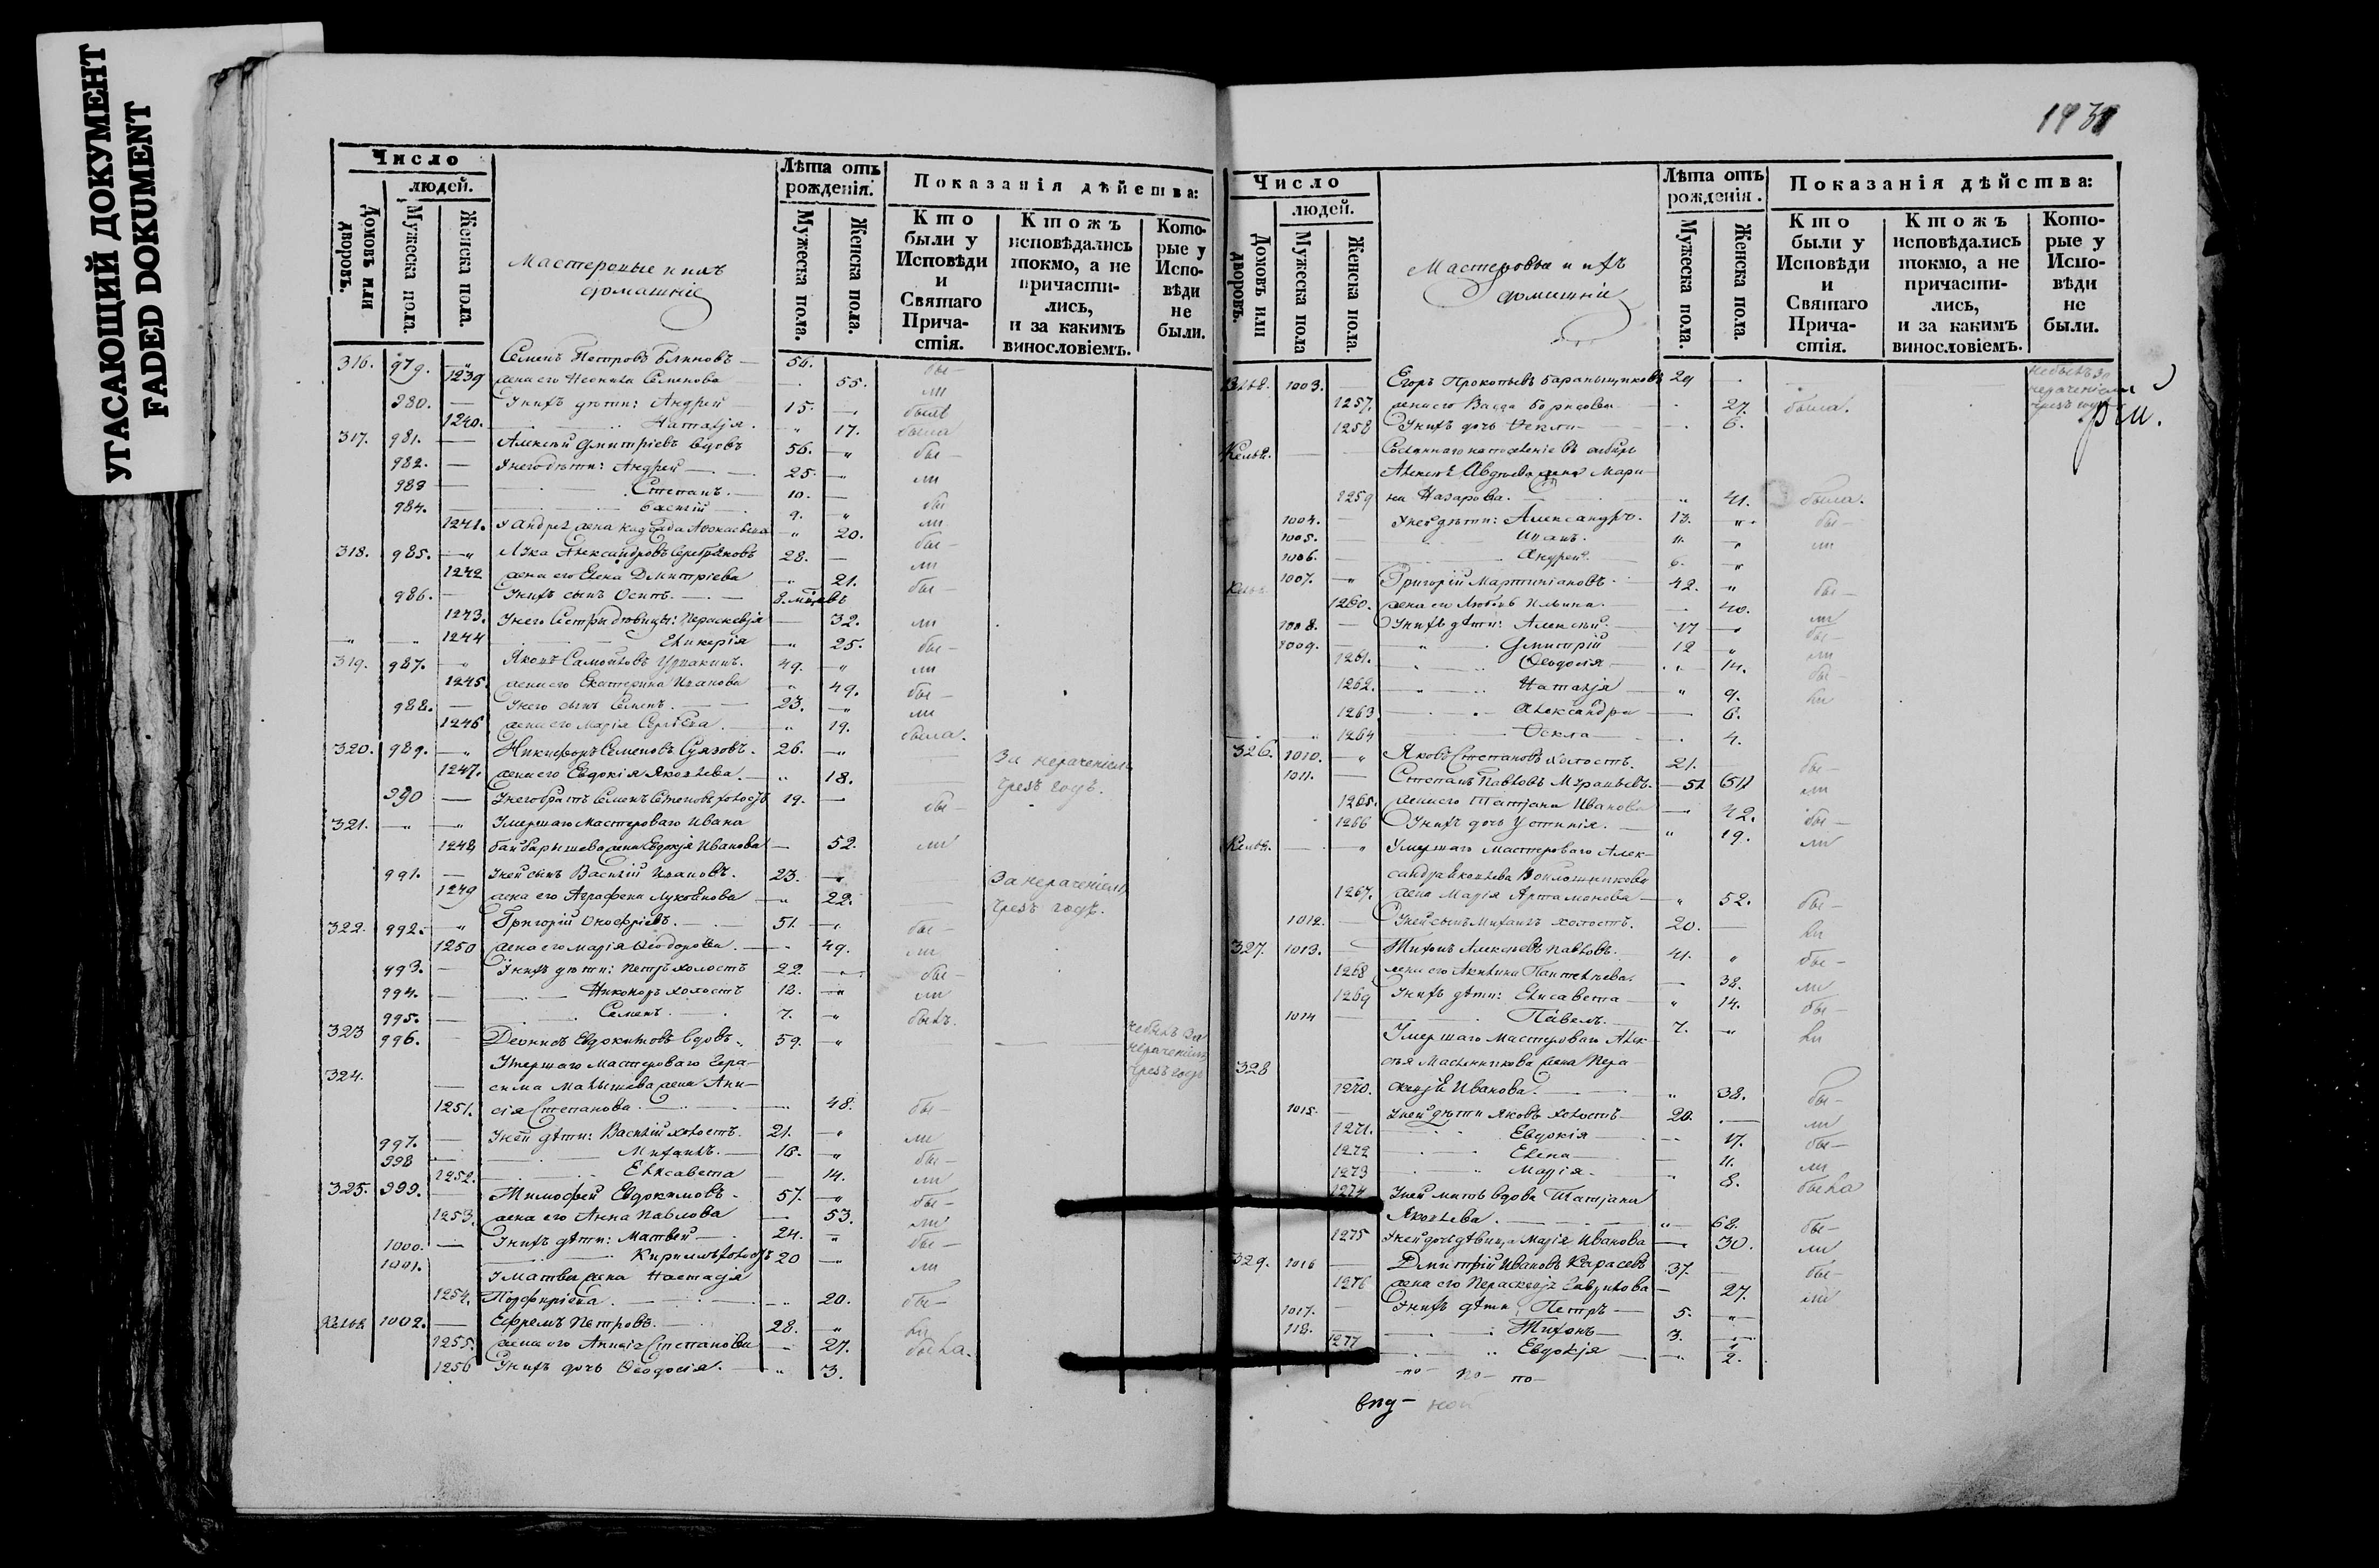 УГАСАЮЩИЙ ДОКУМЕНТ
FADED DOKUMENT
Число
людей.
Домовъ или дворовъ.
Мужеска пола.
Женска пола.
Мастеровые и ихъ
домашніе
Лѣта отъ рожденія.
Мужеска пола.
Женска пола.
Показанія дѣйства:
Кто были у Исповѣди и Святаго Причастія.
Ктожъ исповѣдались токмо, а не причастились, и за какимъ винословіемъ.
Которые у Исповѣди не были.
316. 979. — Семенъ Петровъ Блиновъ — 56. бы-
1239 жена его Семенова 55. ли
980. — У нихъ дѣти: Андрей 15. — былъ
1240. Наталія. 17. была
317. 981. — Алексѣй Дмитріевъ вдовъ 56. " бы-
982. — У него дѣти: Андрей — 25. ли
983 — Степанъ. 10. — бы
984. Василій 9. " ли
1241. у Андрея жена Надежда 20. бы-
318. 985. — Лука Александровъ Серебряковъ 28. — ли
1242 жена его Елена Дмитріева 21. бы-
986. — У нихъ сынъ Осипъ. — 8. мцовъ
1243. У него Сестры дѣвицы: Пераскевія 32. ли
1244 Гликерія 25. бы-
319. 987. Яковъ Самойловъ 49. " ли
1245. жена его Екатерина Иванова 49. бы-
988. — У него сынъ Семенъ. 23. ли
1246 жена его Марія Сергѣева 19. была.
320. 989. Никифоръ Семеновъ Суязовъ. 26. За нераченіемъ
1247. жена его Евдокія Яковлева. 18. чрезъ годъ.
990 — У него братъ Семенъ Семеновъ холостъ 19. — бы-
321. Умершаго Мастероваго Ивана
1248 Байбарышева жена Евдокія Иванова — 52. ли
991. — У ней сынъ Василій Ивановъ. 23. За нераченіемъ
1249 жена его Аграфена Лукоянова 22. чрезъ годъ.
322. 992. Григорій Онофріевъ. 51. бы-
1250 жена его Марія Ѳеодорова. 49. ли
993. — У нихъ дѣти: Петръ холостъ 22. бы-
994. Никоноръ холостъ 18. ли
995. Семенъ. 7. былъ.
323 996. Леонидъ Евдокимовъ вдовъ. 59. не былъ за нераченіемъ чрезъ годъ
324. Умершаго Мастероваго Гера-
сима Малышева жена Ани-
1251. сія Степанова. 48. бы-
997. — У ней дѣти: Василій холостъ. 21. ли
998 Михаилъ. 16. бы-
1252. Елисавета 14. ли
325. 999. Тимофей Евдокимовъ. 57. бы-
1253. жена его Анна Павлова 53. ли
1000. — У нихъ дѣти: Матвей 24. бы-
1001. Кириллъ холостъ 20 ли
У Матвея жена Настасія
1254. Порфиріева. 20. бы-
1002. — Ефремъ Петровъ. 28. ли
1255. жена его Анисія Степанова 27. была.
1256 У нихъ дочь Ѳеодосія. 3.
193
Число
людей.
Домовъ или дворовъ.
Мужеска пола
Женска пола.
Мастеровые и ихъ
домашніе
Лѣта отъ рожденія.
Мужеска пола.
Женска пола.
Показанія дѣйства:
Кто были у Исповѣди и Святаго Причастія.
Ктожъ исповѣдались токмо, а не причастились, и за какимъ винословіемъ.
Которые у Исповѣди не были.
1003. — Егоръ Прокопьевъ Баранщиковъ 29 не былъ за нераченіемъ чрезъ годъ
1257. жена его Васса Борисова 27. была.
1258 У нихъ дочь Ѳекла 6.
Сосланнаго на поселеніе въ Сибирь
Алексѣя Авдѣева жена Мари-
1259 на Назарова. 41. была.
1004. — У ней дѣти: Александръ. 13. бы-
1005. Иванъ. 11. ли
1006. Андрей. 6.
1007. Григорій Мартиніановъ. 42. бы-
1260. жена его Любовь Ильина. 40. ли
1008. — У нихъ дѣти: Алексѣй. 17 бы-
1009. Дмитрій 12 ли
1261. Ѳеодосія 14. бы-
1262. Наталія 9. ли
1263 Александра 6.
1264 Ѳекла 4.
326. 1010. Яковъ Степановъ холостъ. 21. бы-
1011. — Степанъ Павловъ 51 ли
1265. жена его Татіана Иванова 42. бы-
1266 У нихъ дочь Устинія. 19. ли
Умершаго Мастероваго Алек-
сандра Яковлева Войлошникова
1267. жена Марія Артамонова 52. бы-
1012. У ней сынъ Михаилъ холостъ. 20. ли
327. 1013. Тихонъ Алексѣевъ Павловъ. 41. бы-
1268 жена его Акилина Пантелѣева. 38. ли
1269 У нихъ дѣти: Елисавета 14. бы-
1014 Павелъ. 7. ли
Умершаго Мастероваго Алек-
328 сѣя Масленникова жена Пера-
1270. скевія Иванова. 38. бы-
1015. У ней дѣти Яковъ холостъ 20. ли
1271. Евдокія 17. бы-
1272 Елена 11. ли
1273 Марія. 8. была
1274 У ней мать вдова Татіана
Яковлева. 68. бы-
1275 У ней дочь дѣвица Марія Иванова 30. ли
329. 1016 Дмитрій Ивановъ Карасевъ 37. бы-
1276 жена его Пераскевія Гаврилова 27. ли
1017. У нихъ дѣти Петръ 5.
118. Тихонъ 3.
1277 Евдокія 2.